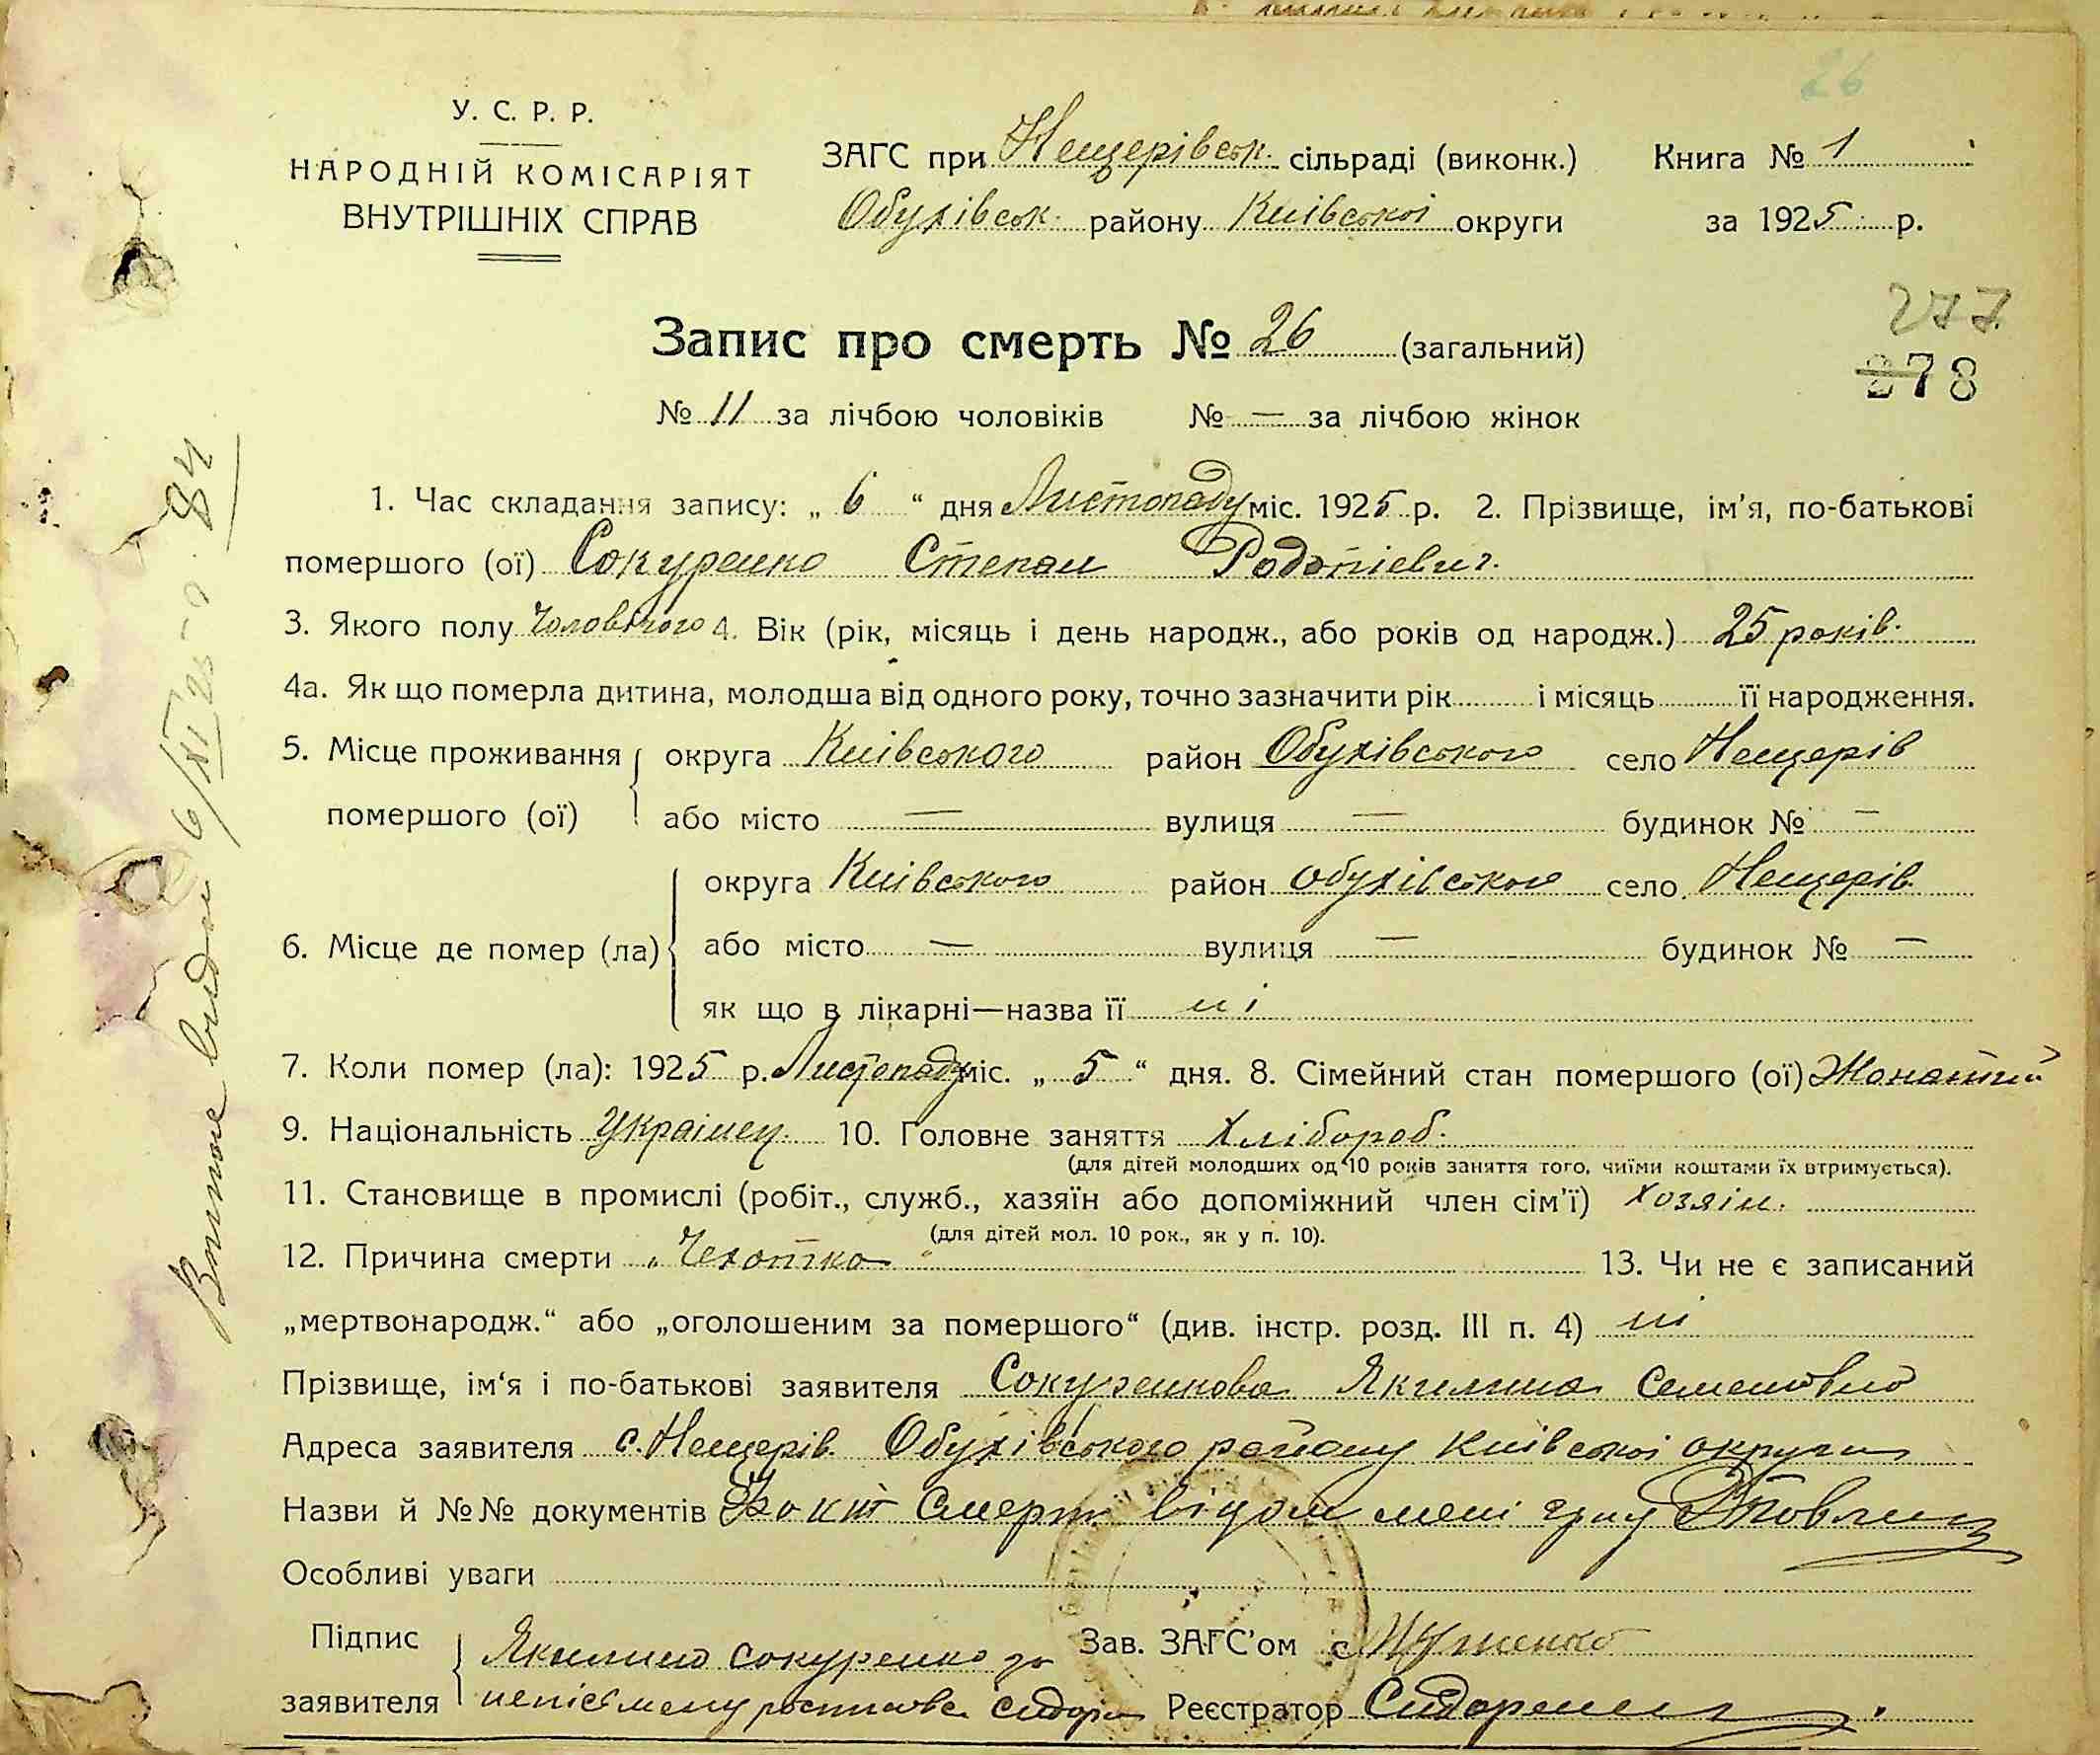 26
У. С. Р. Р.
НАРОДНІЙ КОМІСАРІЯТ
ВНУТРІШНІХ СПРАВ
ЗАГС при Нещерівськ. сільраді (виконк.)
Обухівськ. району Київської округи
Книга № 1
за 1925 р.
277
278
Запис про смерть № 26 (загальний)
№ 11 за лічбою чоловіків № — за лічбою жінок
1. Час складання запису: „ 6 “ дня Листопаду міс. 1925 р. 2. Прізвище, ім'я, по-батькові
помершого (ої) Сокуренко Степан Родотіевич.
3. Якого полу Чоловічого 4. Вік (рік, місяць і день народж., або років од народж.) 25 років.
4а. Як що померла дитина, молодша від одного року, точно зазначити рік і місяць її народження.
5. Місце проживання помершого (ої) округа Київського район Обухівського село Нещерів
або місто — вулиця — будинок № —
6. Місце де помер (ла) округа Київського район обухівського село Нещерів
або місто — вулиця — будинок № —
як що в лікарні—назва її ні
7. Коли помер (ла): 1925 р. Листопаду міс. „ 5 “ дня. 8. Сімейний стан помершого (ої) Жонатий
9. Національність Україиец. 10. Головне заняття Хлібороб.
(для дітей молодших од 10 років заняття того, чиїми коштами їх втримується).
11. Становище в промислі (робіт., служб., хазяїн або допоміжний член сім'ї) хозяїн.
(для дітей мол. 10 рок., як у п. 10).
12. Причина смерти „Чехотка“ 13. Чи не є записаний
„мертвонародж.“ або „оголошеним за помершого“ (див. інстр. розд. III п. 4) ні
Прізвище, ім'я і по-батькові заявителя Сокуренкова Якилина Семеновна
Адреса заявителя с. Нещерів Обухівського району Київської округи
Назви й №№ документів Факт Смерті відом мені
Особливі уваги
Підпис заявителя Якилина Сокуренко за
Зав. ЗАГС'ом
Реєстратор Сидоренко
Виппсь видан 6/XI 25 р. 84